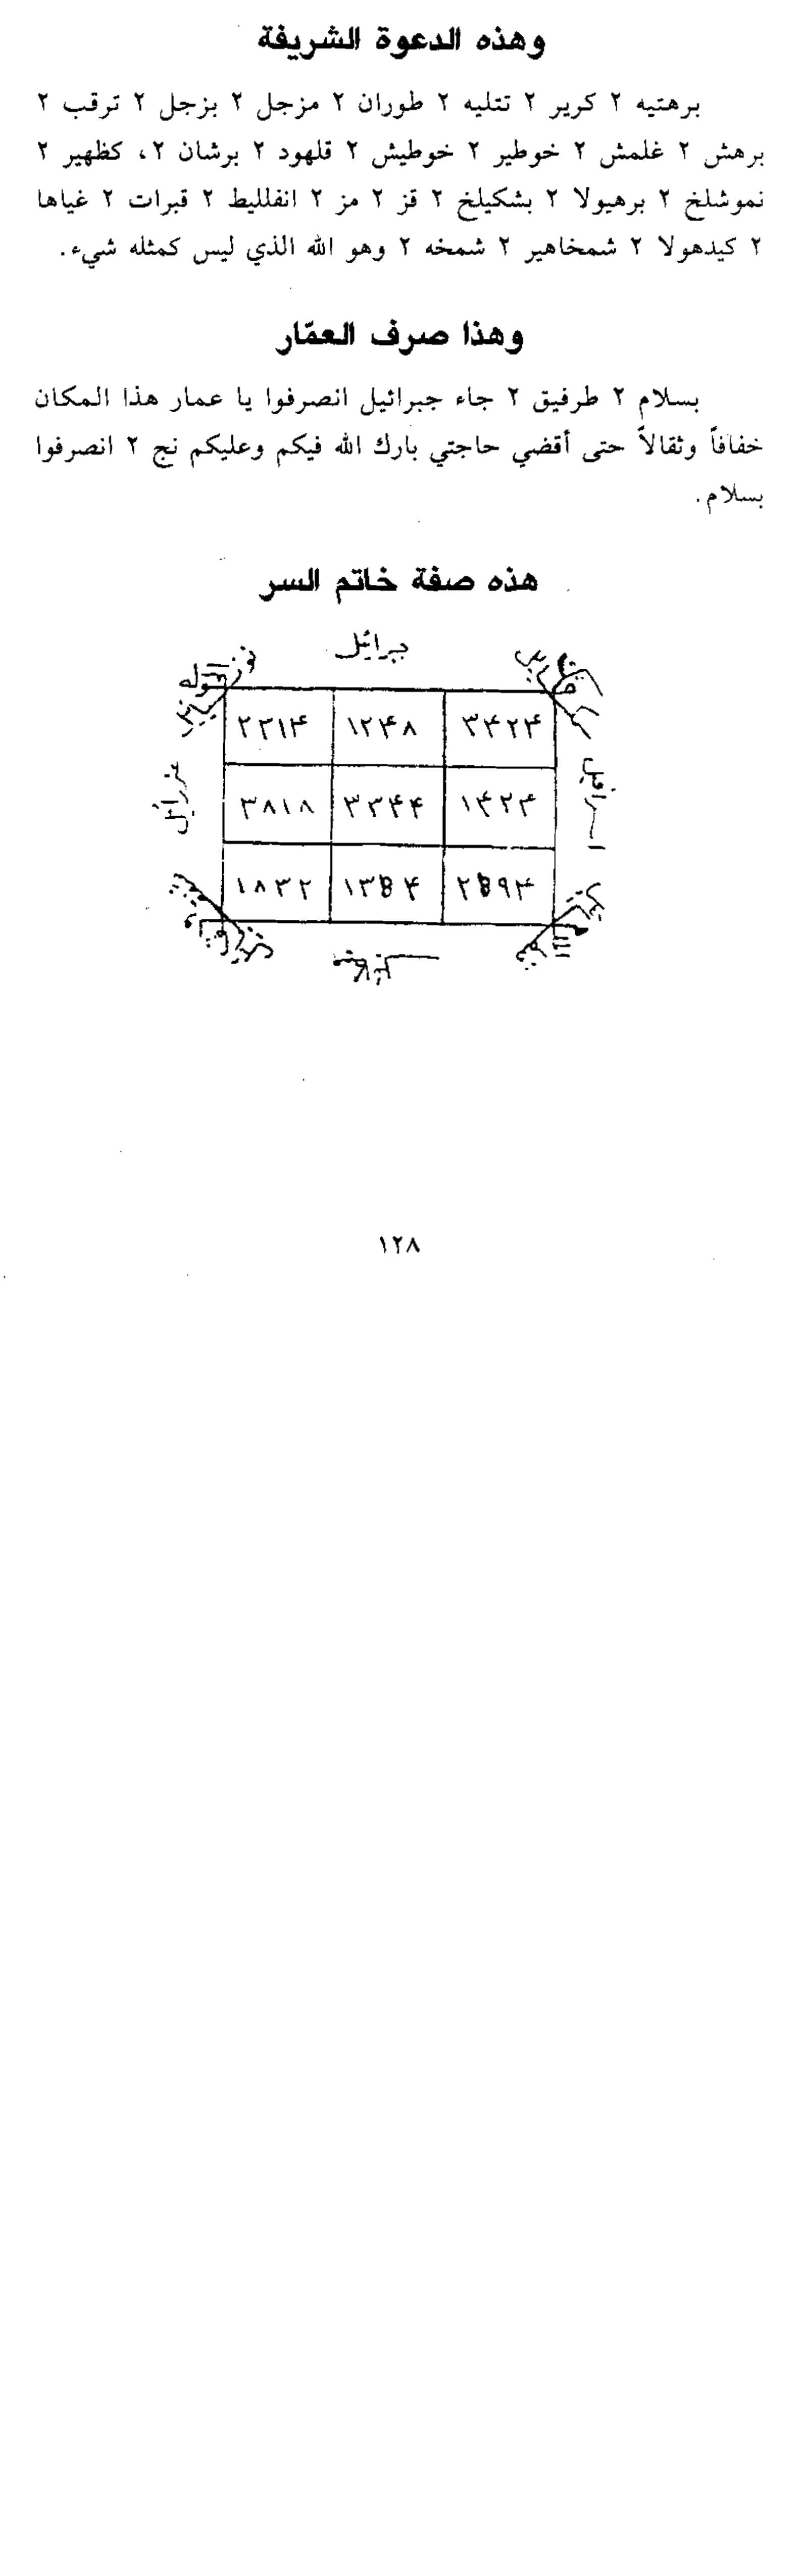 وهذه الدعوة الشريفة
برهتيه ٢ كرير ٢ تتليه ٢ طوران ٢ مزجل ٢ بزجل ٢ ترقب ٢
برهش ٢ غلمش ٢ خوطير ٢ خوطيش ٢ قلهود ٢ برشان ٢، كظهير ٢
نموشلخ ٢ برهيولا ٢ بشكيلخ ٢ قز ٢ مز ٢ انغلليط ٢ قبرات ٢ غياها
٢ كيدهولا ٢ شمخاهير ٢ شمخه ٢ وهو الله الذي ليس كمثله شيء.
وهذا صرف العمّار
بسلام ٢ طرفيق ٢ جاء جبرائيل انصرفوا يا عمار هذا المكان
خفافاً وثقالاً حتى أقضي حاجتي بارك الله فيكم وعليكم نج ٢ انصرفوا
بسلام.
هذه صفة خاتم السر
جبرائيل
٣۴٢۴ ١٢۴٨ ٢٣١۴
اسرافيل
عزرائيل
١۴٢٣ ٣٣۴۴ ٣٨١٨
١٨٣٢
ميكائيل
١٢٨